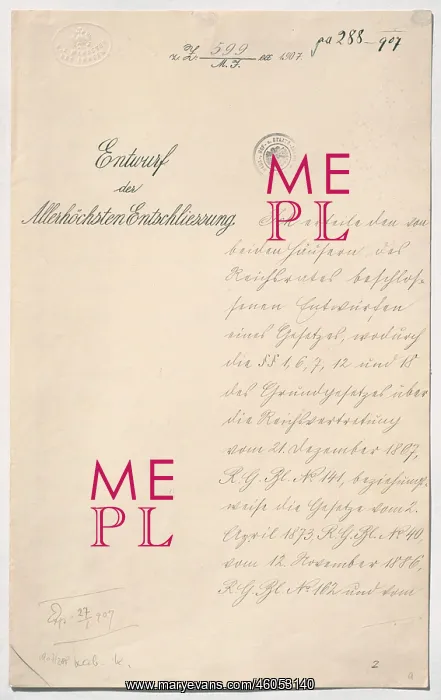 z. Z. 599 / M.I. ex 1907
pa 288 - 907
Entwurf
der
Allerhöchsten Entschliessung.
ME
PL
Ich erteile den von
beiden Häusern des
Reichsrates beschlos-
senen Entwürfen
eines Gesetzes, wodurch
die §§ 1, 6, 7, 12 und 18
des Grundgesetzes über
die Reichsvertretung
vom 21. Dezember 1867,
R.G.Bl. No 141, beziehungs-
weise die Gesetze vom 2.
April 1873, R.G.Bl. No 40,
vom 12. November 1886,
R.G.Bl. No 162 und vom
ME
PL
27/1 907
2
www.maryevans.com/46053140